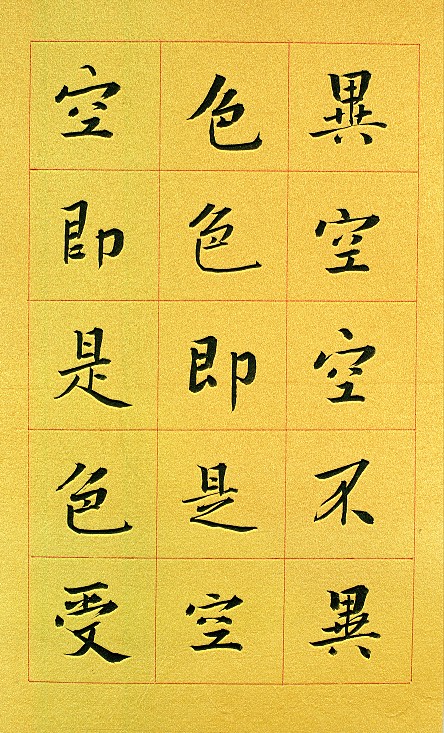 異空空不異
色色即是空
空即是色受